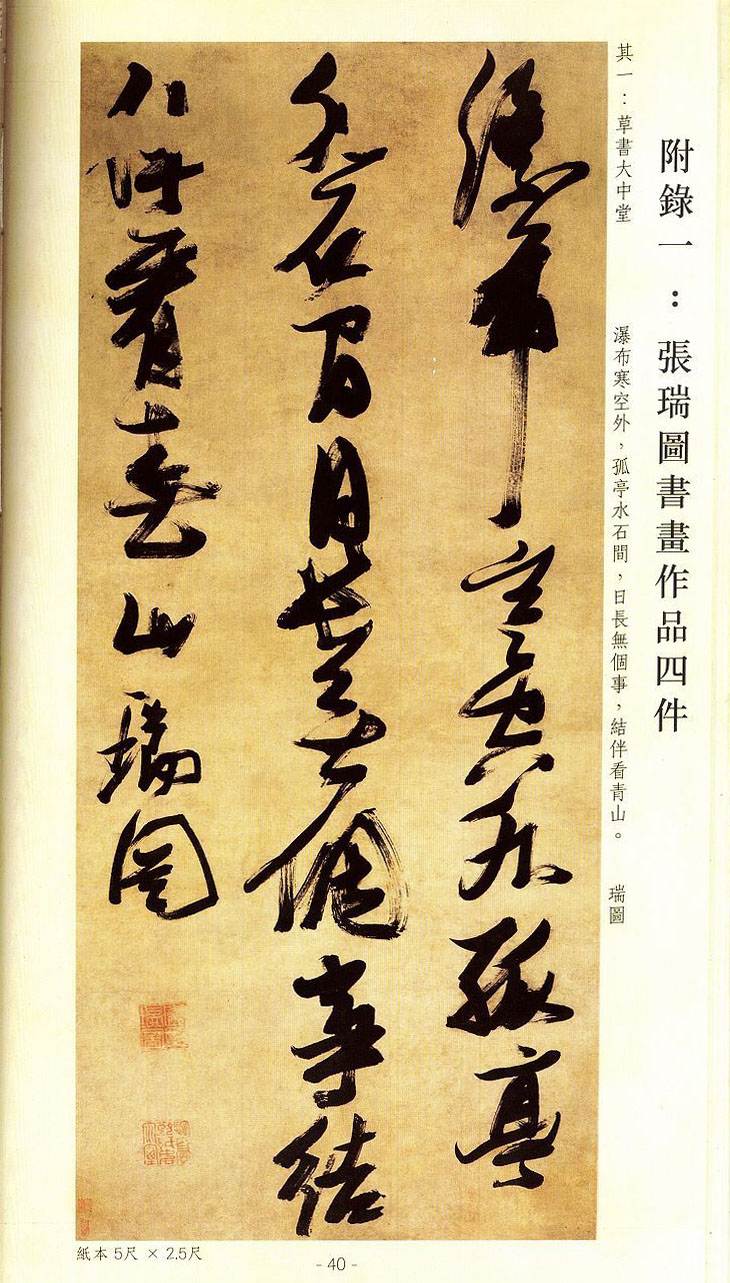 附錄一：張瑞圖書畫作品四件
其一：草書大中堂 瀑布寒空外，孤亭水石間，日長無個事，結伴看青山。 瑞圖
瀑布寒空外孤亭
水石間日長無個事結
伴看青山瑞圖
紙本 5尺 × 2.5尺
- 40 -